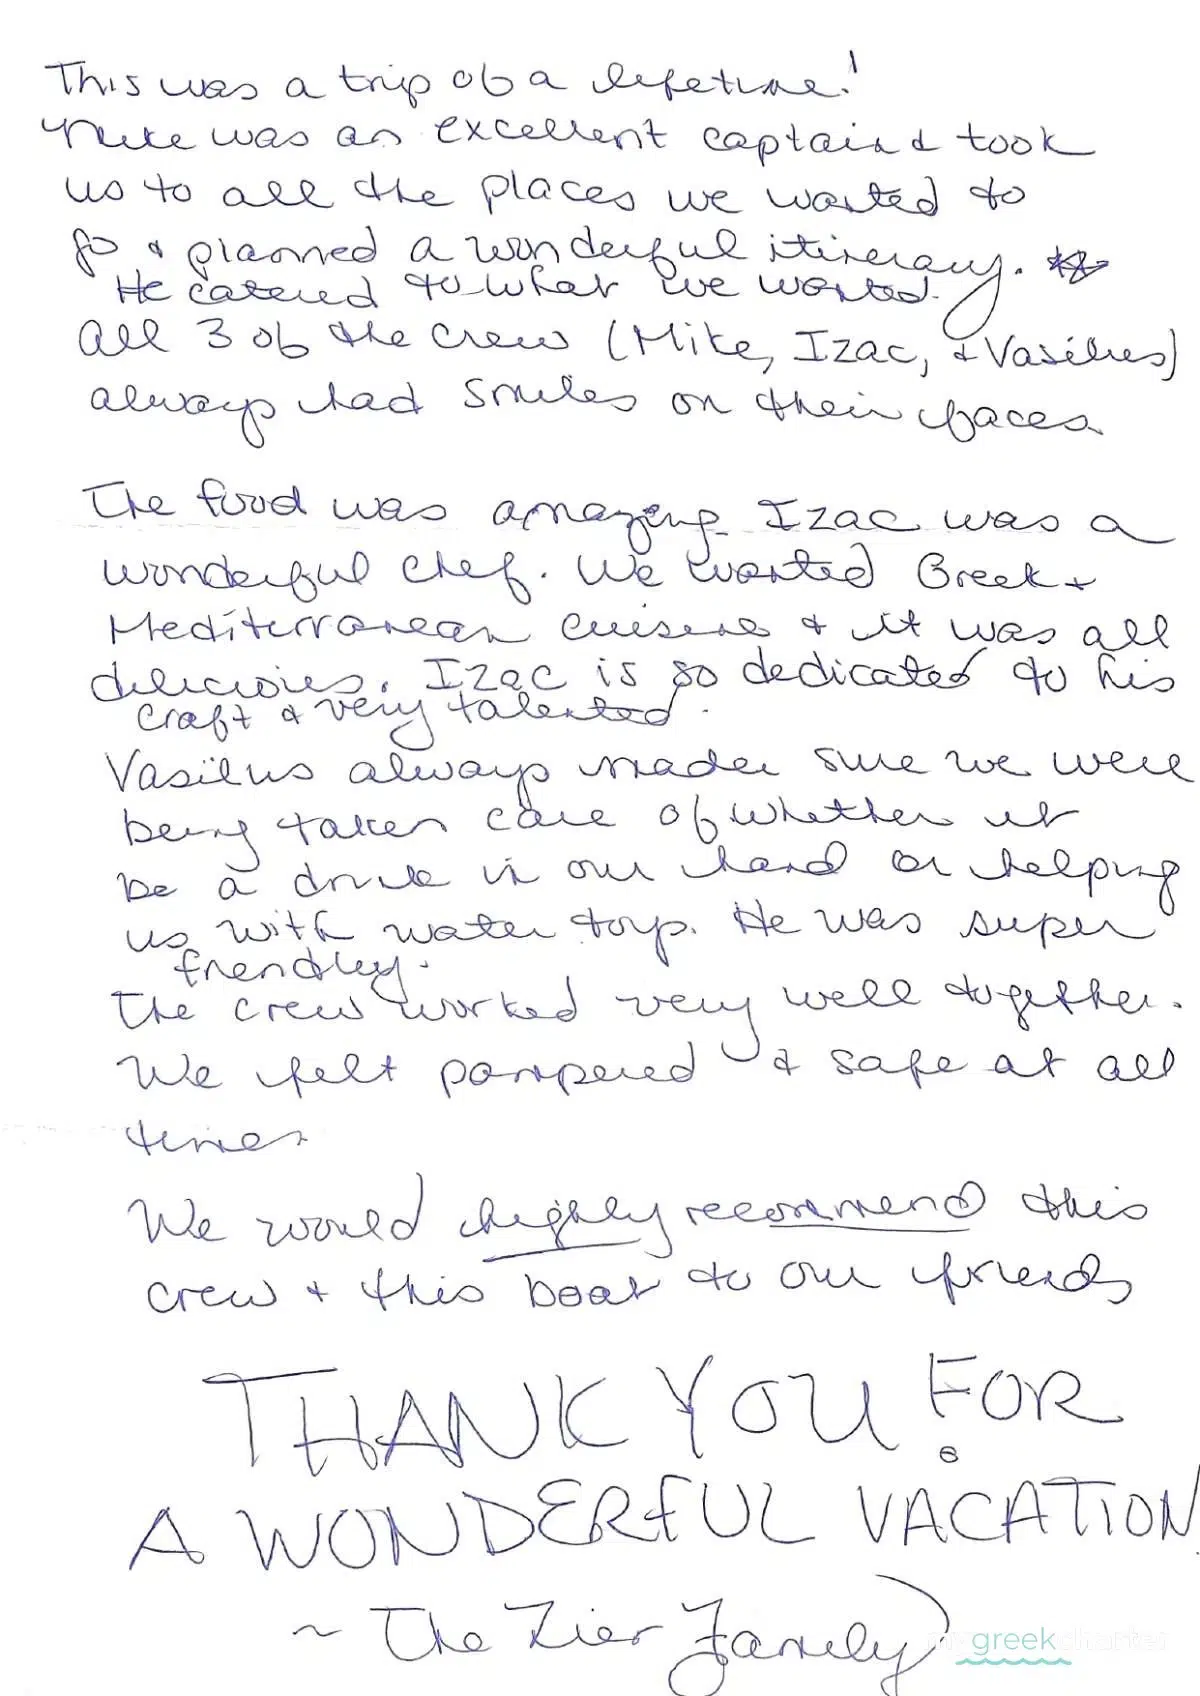 This was a trip of a lifetime!
Mike was an excellent captain & took
us to all the places we wanted to
go & planned a wonderful itinerary.
He catered to what we wanted.
All 3 of the crew (Mike, Izac, & Vasilius)
always had smiles on their faces.
The food was amazing. Izac was a
wonderful chef. We wanted Greek +
Mediterranean cuisine & it was all
delicious. Izac is so dedicated to his
craft & very talented.
Vasilius always made sure we were
being taken care of whether it
be a drink in our hand or helping
us with water toys. He was super
friendly.
The crew worked very well together.
We felt pampered & safe at all
times.
We would highly recommend this
crew + this boat to our friends
THANK YOU FOR
A WONDERFUL VACATION
~ The Zier Family
mygreekcharter